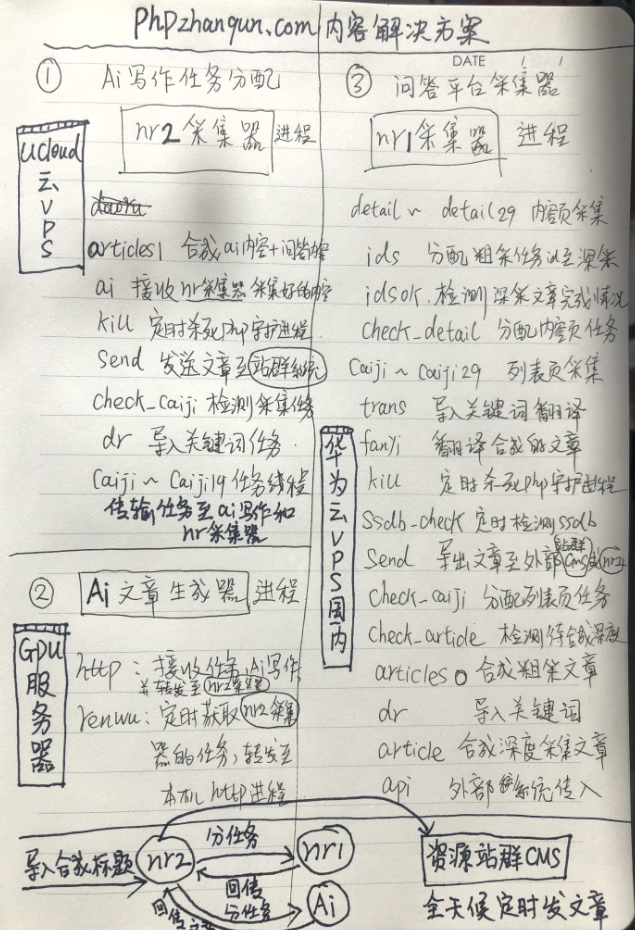 Phpzhanqun.com内容解决方案
DATE / /
① Ai写作任务分配
nr2采集器 进程
ucloud云VPS
articles1 合成ai内容+问答内容
ai 接收nr采集器采集好的内容
kill 定时杀死php守护进程
send 发送文章至站群系统
check_caiji 检测采集任务
dr 导入关键词任务
caiji ~ caiji19 任务线程
传输任务至ai写作和
nr采集器
② Ai文章生成器 进程
GPU服务器
http：接收任务，Ai写作
并转发至nr2采集器
renwu：定时获取nr2采集
器的任务，转发至
本机http进程
③ 问答平台采集器
nr1采集器 进程
华为云VPS国内
detail ~ detail29 内容页采集
ids 分配粗采任务id至深采
idsok 检测深采文章完成情况
check_detail 分配内容页任务
caiji ~ caiji29 列表页采集
trans 导入关键词翻译
fanyi 翻译合成的文章
kill 定时杀死php守护进程
ssdb_check 定时检测ssdb
send 导出文章至外部站群cms或nr2
check_caiji 分配列表页任务
check_article 检测待合成深度
articles 合成粗采文章
dr 导入关键词
article 合成深度采集文章
api 外部系统传入
导入合成标题
nr2
分任务
回传
nr1
分任务
回传文章
Ai
资源站群CMS
全天候定时发文章